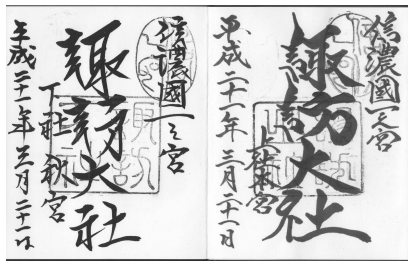 信濃國一之宮
諏訪大社
上社本宮
平成二十一年三月二十一日
信濃國一之宮
諏訪大社
下社秋宮
平成二十一年三月二十一日